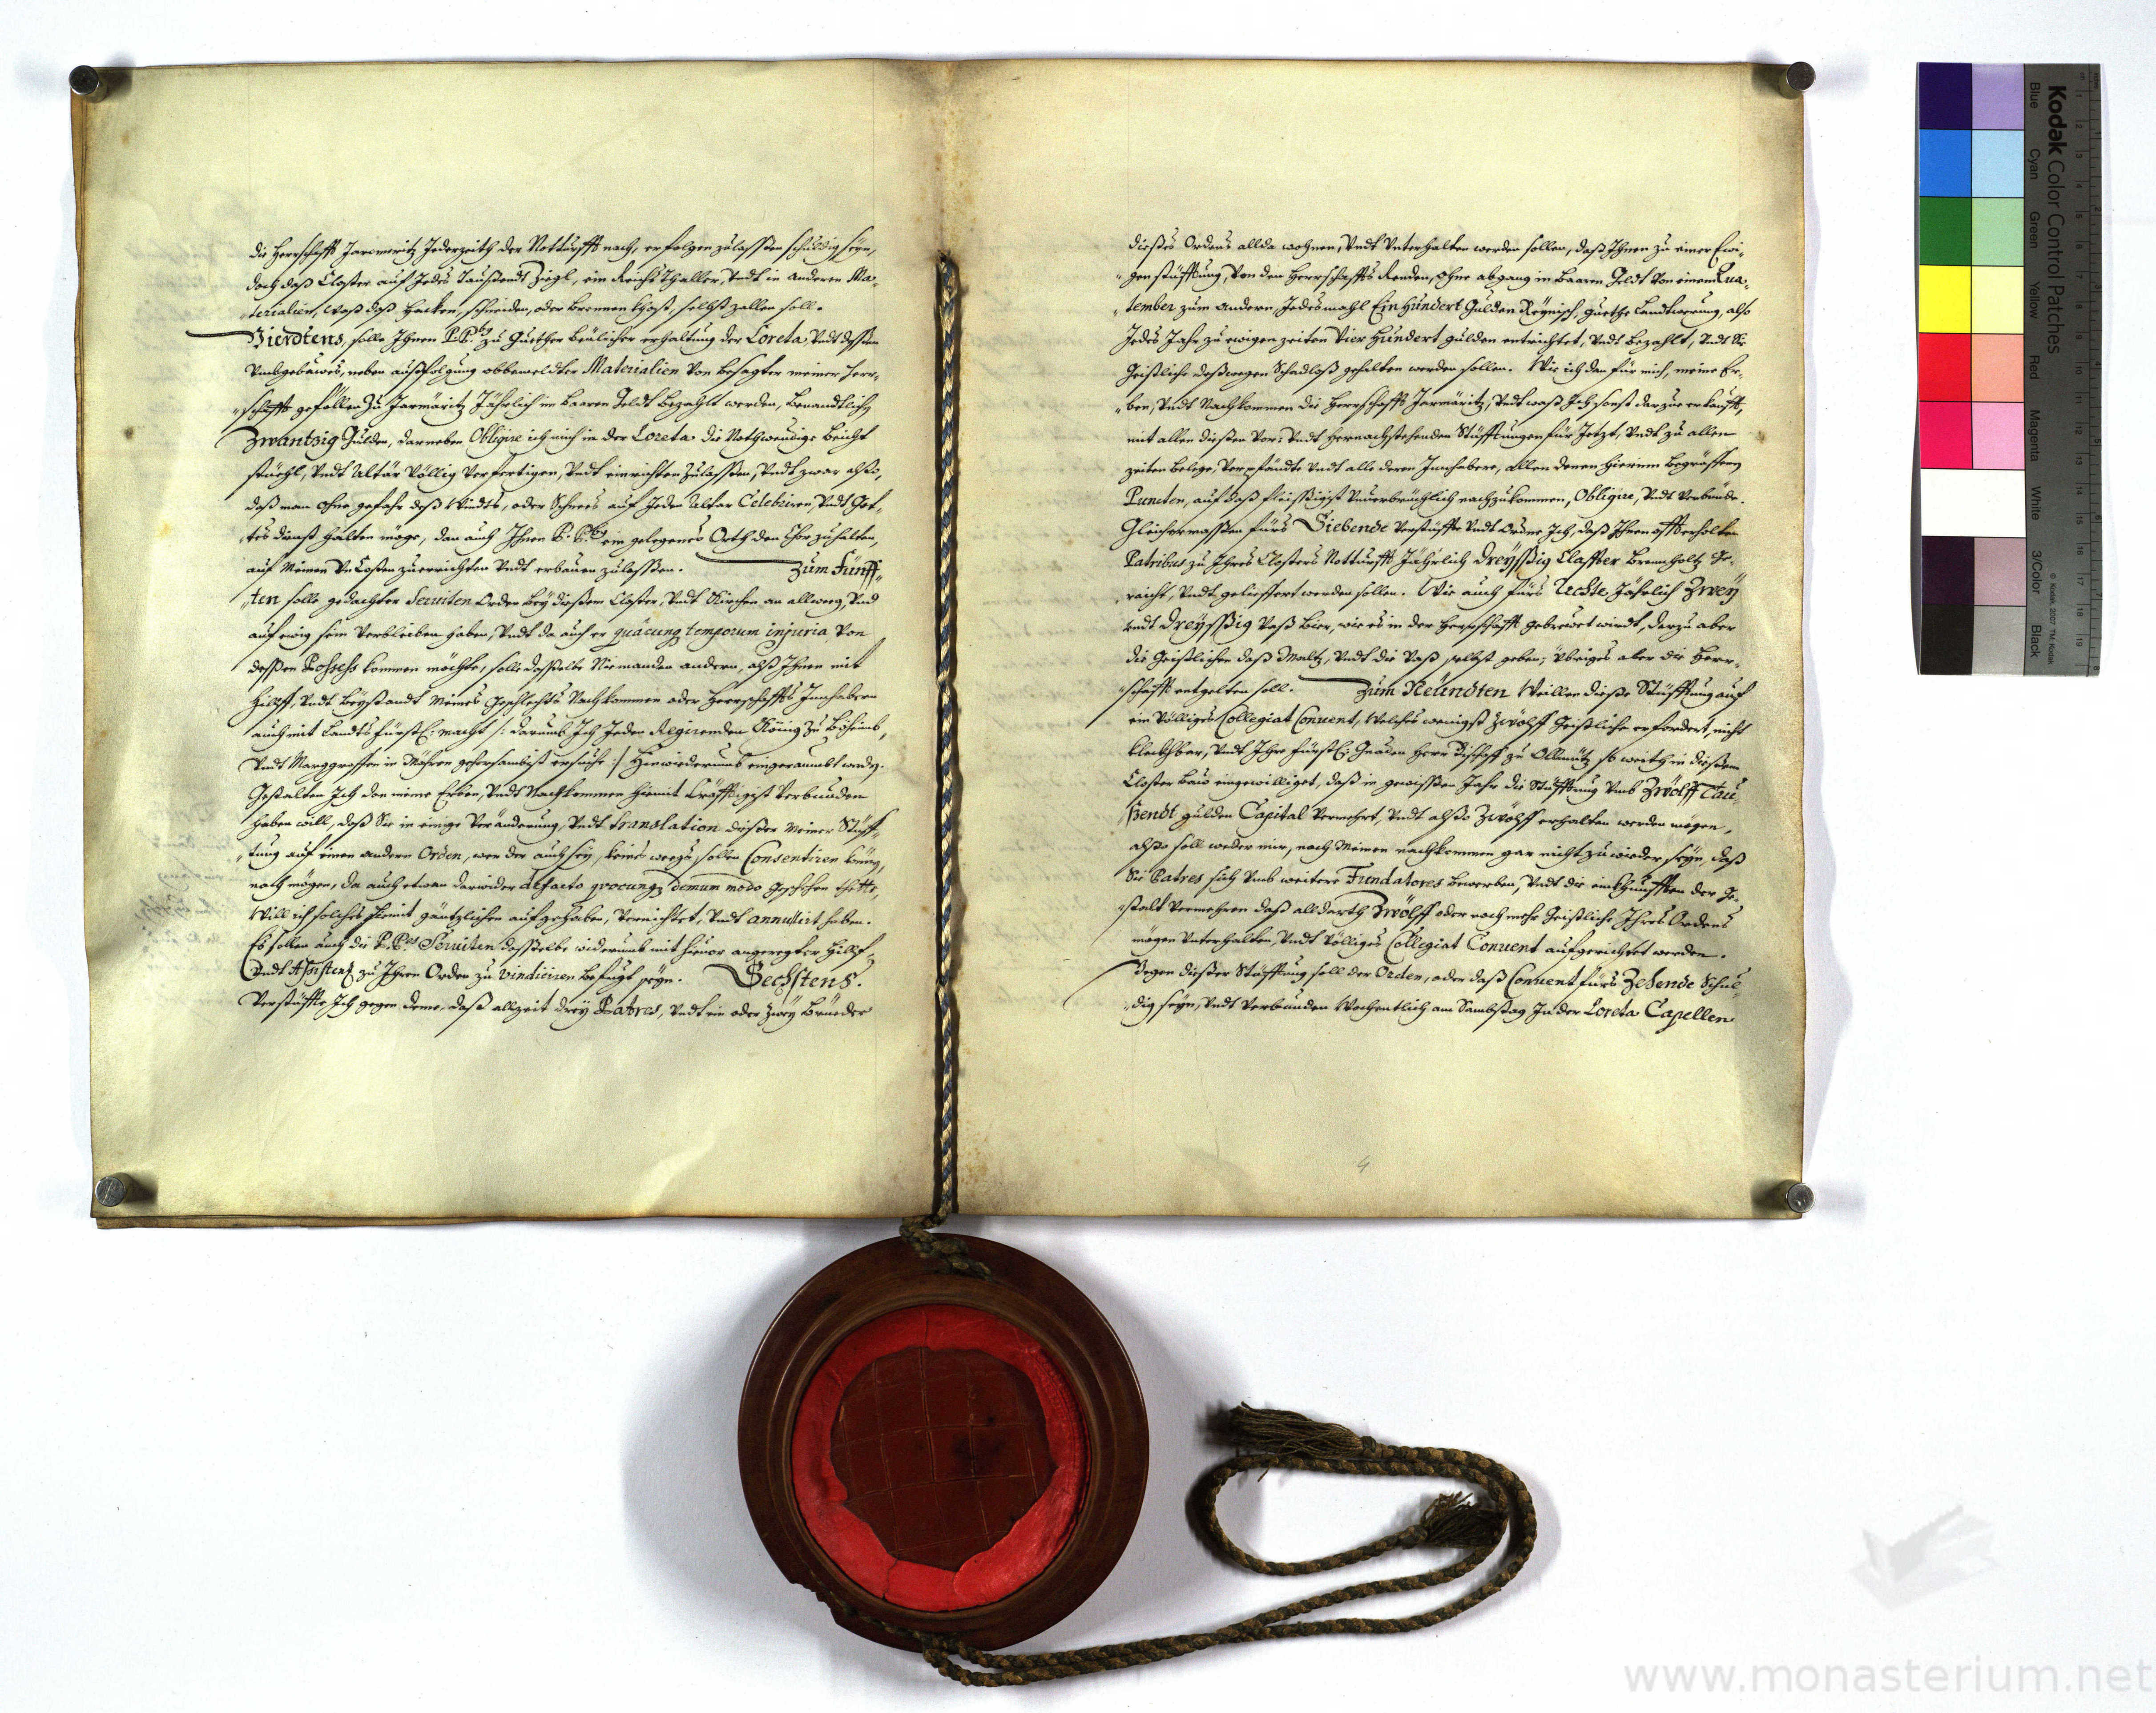 die Herrschafft Jaromeritz Jederzeith der Notturfft nach, erfolgen zulassen schuldig seyn,
doch daß Closter auf Jedes Taußendt Ziegl, ein Reichs Thaller, Undt in anderen Ma-
terialien, Waß daß Hacken, schneiden, oder brennen khost, selbst zallen soll.
Vierdtens, solle Ihnen P.P.bus zu Guether beülicher erhaltung der Loreta, Undt dessen
Umbgebäwes, neben außfolgung obbemeldter Materialien Von besagter meiner Herr-
schafft gefällen Zu Jarmäritz Jährlich im baaren Geldt bezahlt werden, benandtlichen
Zwantzig Gulden, darneben Obligire ich mich in der Loreta die Nothwendige beicht
stüehl, Undt Altär Völlig Verfertigen, Undt einrichten Zulassen, Undt zwar alßo,
daß man ohne gefahr deß Windts, oder Schnees auf Jeden Altar Celebriren, Undt Got-
tes dienst halten möge, dan auch Ihnen P.P.bus ein gelegenes Orth den Chor zuhalten,
auf Meinen Uncosten zuerrichten Undt erbauen zulassen. Zum Fünff-
ten solle gedachter Seruiten Orden bey dießem Closter, Undt Kirchen an allweeg, Und
auf ewig sein Verbleiben haben, Undt da auch er quacunq temporum injuria Von
deßen Possess kommen möchte, solle dasselbe Niemanden andern, alß Ihnen mit
Hülff, Undt beystandt Meines Geschlechts Nachkommen oder Herrschaffts Innhabern
auch mit Landts fürstl: macht /: darumb Ich Jeden Regirenden König Zu Böheimb,
Undt Marggraffen in Mähren gehorsambist ersuche :/ Hinwiederumb eingeraumbt werden.
Gestalten Ich dan meine Erben, Undt Nachkommen hiemit Cräfftigist Verbunden
haben will, daß Sie in einige Veränderung, Undt translation dießer Meiner Stüff-
tung auf einen andern Orden, wer der auch sey, keines weegs sollen Consentiren können,
noch mögen, da auch etwan darwider defacto quocunq demum modo geschehen thette,
Will ich solches hiemit gäntzlichen aufgehaben, Vernichtet, Undt annullirt haben.
Es sollen auch die P.Pes Seruiten dasselbe widerumb mit hieuor angeregter Hülff
Undt Assistenz zu Ihren Orden zu Vindiciren befugt seyn. Sechstens.
Verstüffte Ich gegen deme, daß allzeit drey Patres, Undt ein oder Zwey brüeder
dießes Ordens allda wohnen, Undt Unterhalten werden sollen, daß Ihnen zu einer Ewi-
gen stüfftung, Von den Herrschaffts Renden, ohne abgang in baaren Geldt Von einem Qua-
tember zum andern, Jedesmahl Ein Hundert Gulden Reynisch, guethe Landtwerung, also
Jedes Jahr zu ewigen zeiten Vier Hundert gulden entrichtet, Undt bezahlt, Undt Sie
Geistliche deßwegen Schadloß gehalten werden sollen. Wie ich dan für mich, meine Er-
ben, Undt Nachkommen die Herrschafft Jarmäritz, Undt waß Ich sonst darzue erkaufft,
mit allen dießen Vor: Undt hernachstehenden Stüfftungen für Jetzt, Undt zu allen
zeiten belege, Verpfändte Undt alle deren Innhabere, allen denen hierinn begriffenen
Puncten, auf daß fleissigist Unverbrüchlich nachzukommen, Obligire, Undt Verbünde.
Gleichermassen fürs Siebende Verstüffte Undt Ordne Ich, daß Ihnen offterholten
Patribus zu Ihres Closters Notturfft Jährlich dreyssig Claffter brennholtz ge-
raicht, Undt geliefert werden sollen. Wie auch fürs Achte, Jährlich Zwey
undt dreyssig Vaß bier, wie es in der Herrschafft gebrewet wirdt, darzu aber
die Geistlichen daß Maltz, Undt die Vaß selbst geben, übriges aber die Herr-
schafft entgelten soll. Zum Neündten Weillen dieße Stüfftung auf
ein Völliges Collegiat Conuent, Welches wenigst Zwölff Geistliche erfordert, nicht
kleckhbar, Undt Ihre Fürstl: Gnaden Herr Bischoff zu Ollmütz so weith in dießem
Closter baw eingewilliget, daß in gewissen Jahr die Stüfftung Umb Zwölff Tau
ßendt gulden Capital Vermehrt, Undt alßo Zwölff erhalten werden mögen,
alßo soll weder mir, noch Meinen nachkommen gar nicht zuwieder seyn, daß
die Patres sich Umb weitere Fundatores bewerben, Undt die einkhunfften der Ge-
stalt Vermehren daß alldarth Zwölff oder noch mehr Geistliche Ihres Ordens
mögen Unterhalten, Undt Völliges Collegiat Conuent aufgerichtet werden.
Gegen dießer Stüfftung soll der Orden, oder daß Conuent fürs Zehende Schul-
dig seyn, Undt Verbunden Wochentlich am Sambstag In der Loreta Capellen
4
Kodak Color Control Patches
Blue Cyan Green Yellow Red Magenta White 3/Color Black
© Kodak, 2007 TM: Kodak
www.monasterium.net